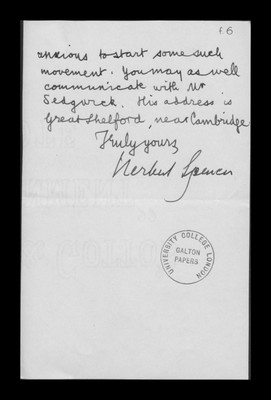 f. 6
anxious to start some such
movement. You may as well
communicate with Mr
Sedgwick. His address is
Great Shelford, near Cambridge
Truly yours
Herbert Spencer
UNIVERSITY COLLEGE LONDON
GALTON
PAPERS